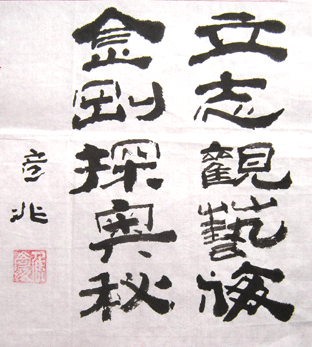 立志觀藝海
金剛探奧秘
兆